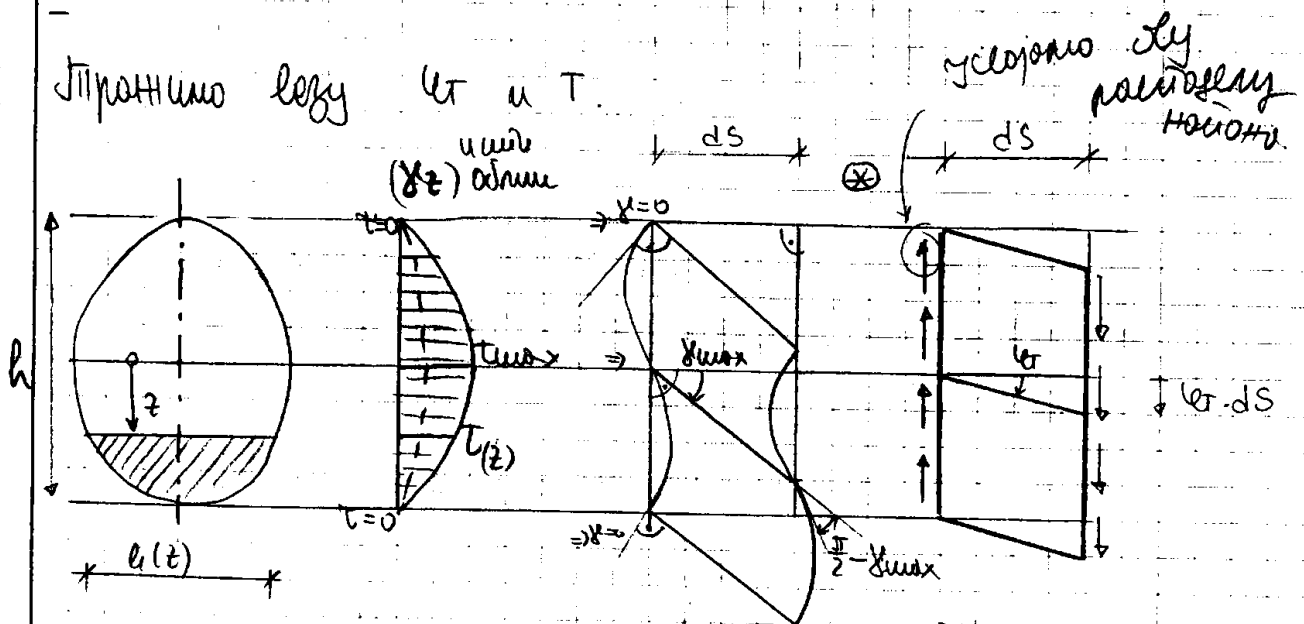 Тражимо везу φT и T.
Усвојамо ову
расподелу
напона.
исти
(γz) облик
dS
dS
⊛
τ=0
⇒ γ=0
h
z
τmax
⇒
γmax
φT
φT·dS
τ(z)
τ=0
⇒γ=0
π/2 - γmax
b(z)